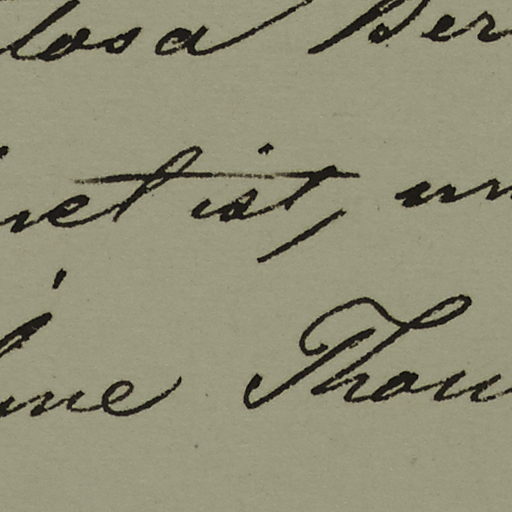 losa Ber
net ist, un
ine Thon